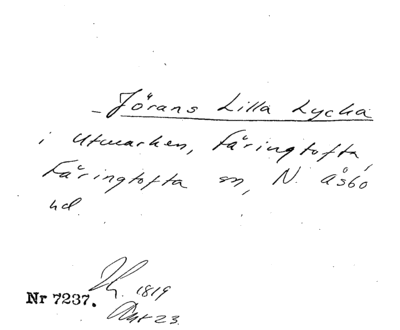 Jörans Lilla Lycka
i Utmarken, Färingtofta,
Färingtofta sn, N. Åsbo
hd.
1819
Nr 7237.
Akt 23.